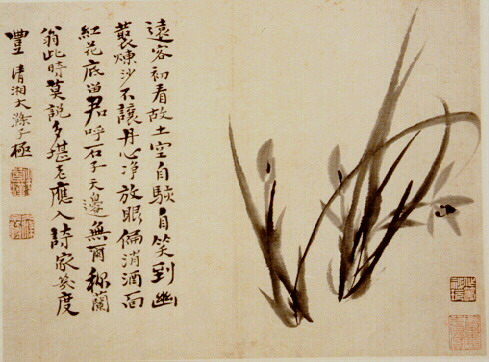 遠客初看故土空自駭自笑到幽
叢煉沙不讓丹心净放眼偏消酒面
紅花底留君呼石子天邊無爾稱蘭
翁此時莫說多堪老應入詩家幾度
豐 清湘大滌子極